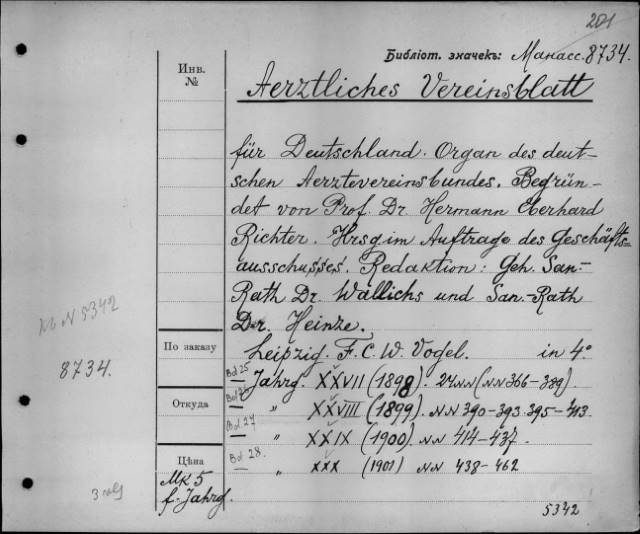 201
Библіот. значекъ: Манасс. 8734.
Инв.
№
Aerztliches Vereinsblatt
für Deutschland. Organ des deut-
schen Aerztevereinsbundes. Begrün-
det von Prof. Dr. Hermann Eberhard
Richter. Hrsg im Auftrage des Geschäfts-
ausschusses. Redaktion: Geh. San.-
Rath Dr. Wallichs und San.-Rath
Dr. Heinze.
Leipzig. F. C. W. Vogel. in 4°
Bd 25 Jahrg. XXVII (1898). 24 NN (NN 366-389).
" XXVIII (1899). NN 390-393. 395-413
Bd 27 " XXIX (1900). NN 414-437.
Bd 28. " XXX (1901) NN 438-462
N 5342
8734.
По заказу
Откуда
Цѣна
Mk 5
f. Jahrg.
5342